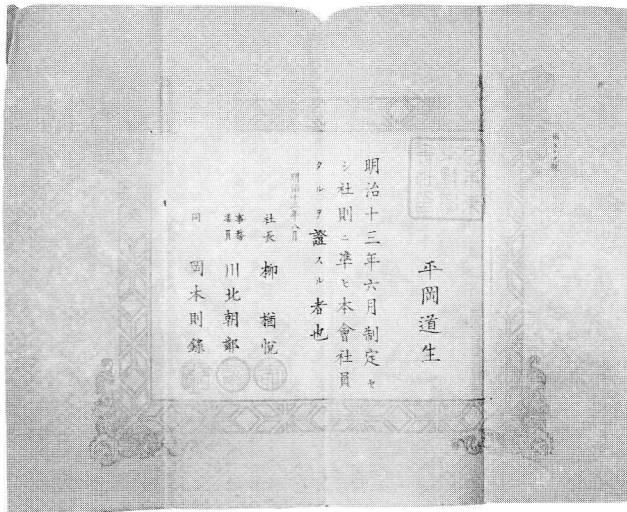 平岡道生
明治十三年六月制定セ
シ社則ニ準ヒ本會社員
タルヲ證スル者也
明治十三年八月
社長 柳 楢悅
事務委員 川北朝鄰
同 岡本則錄